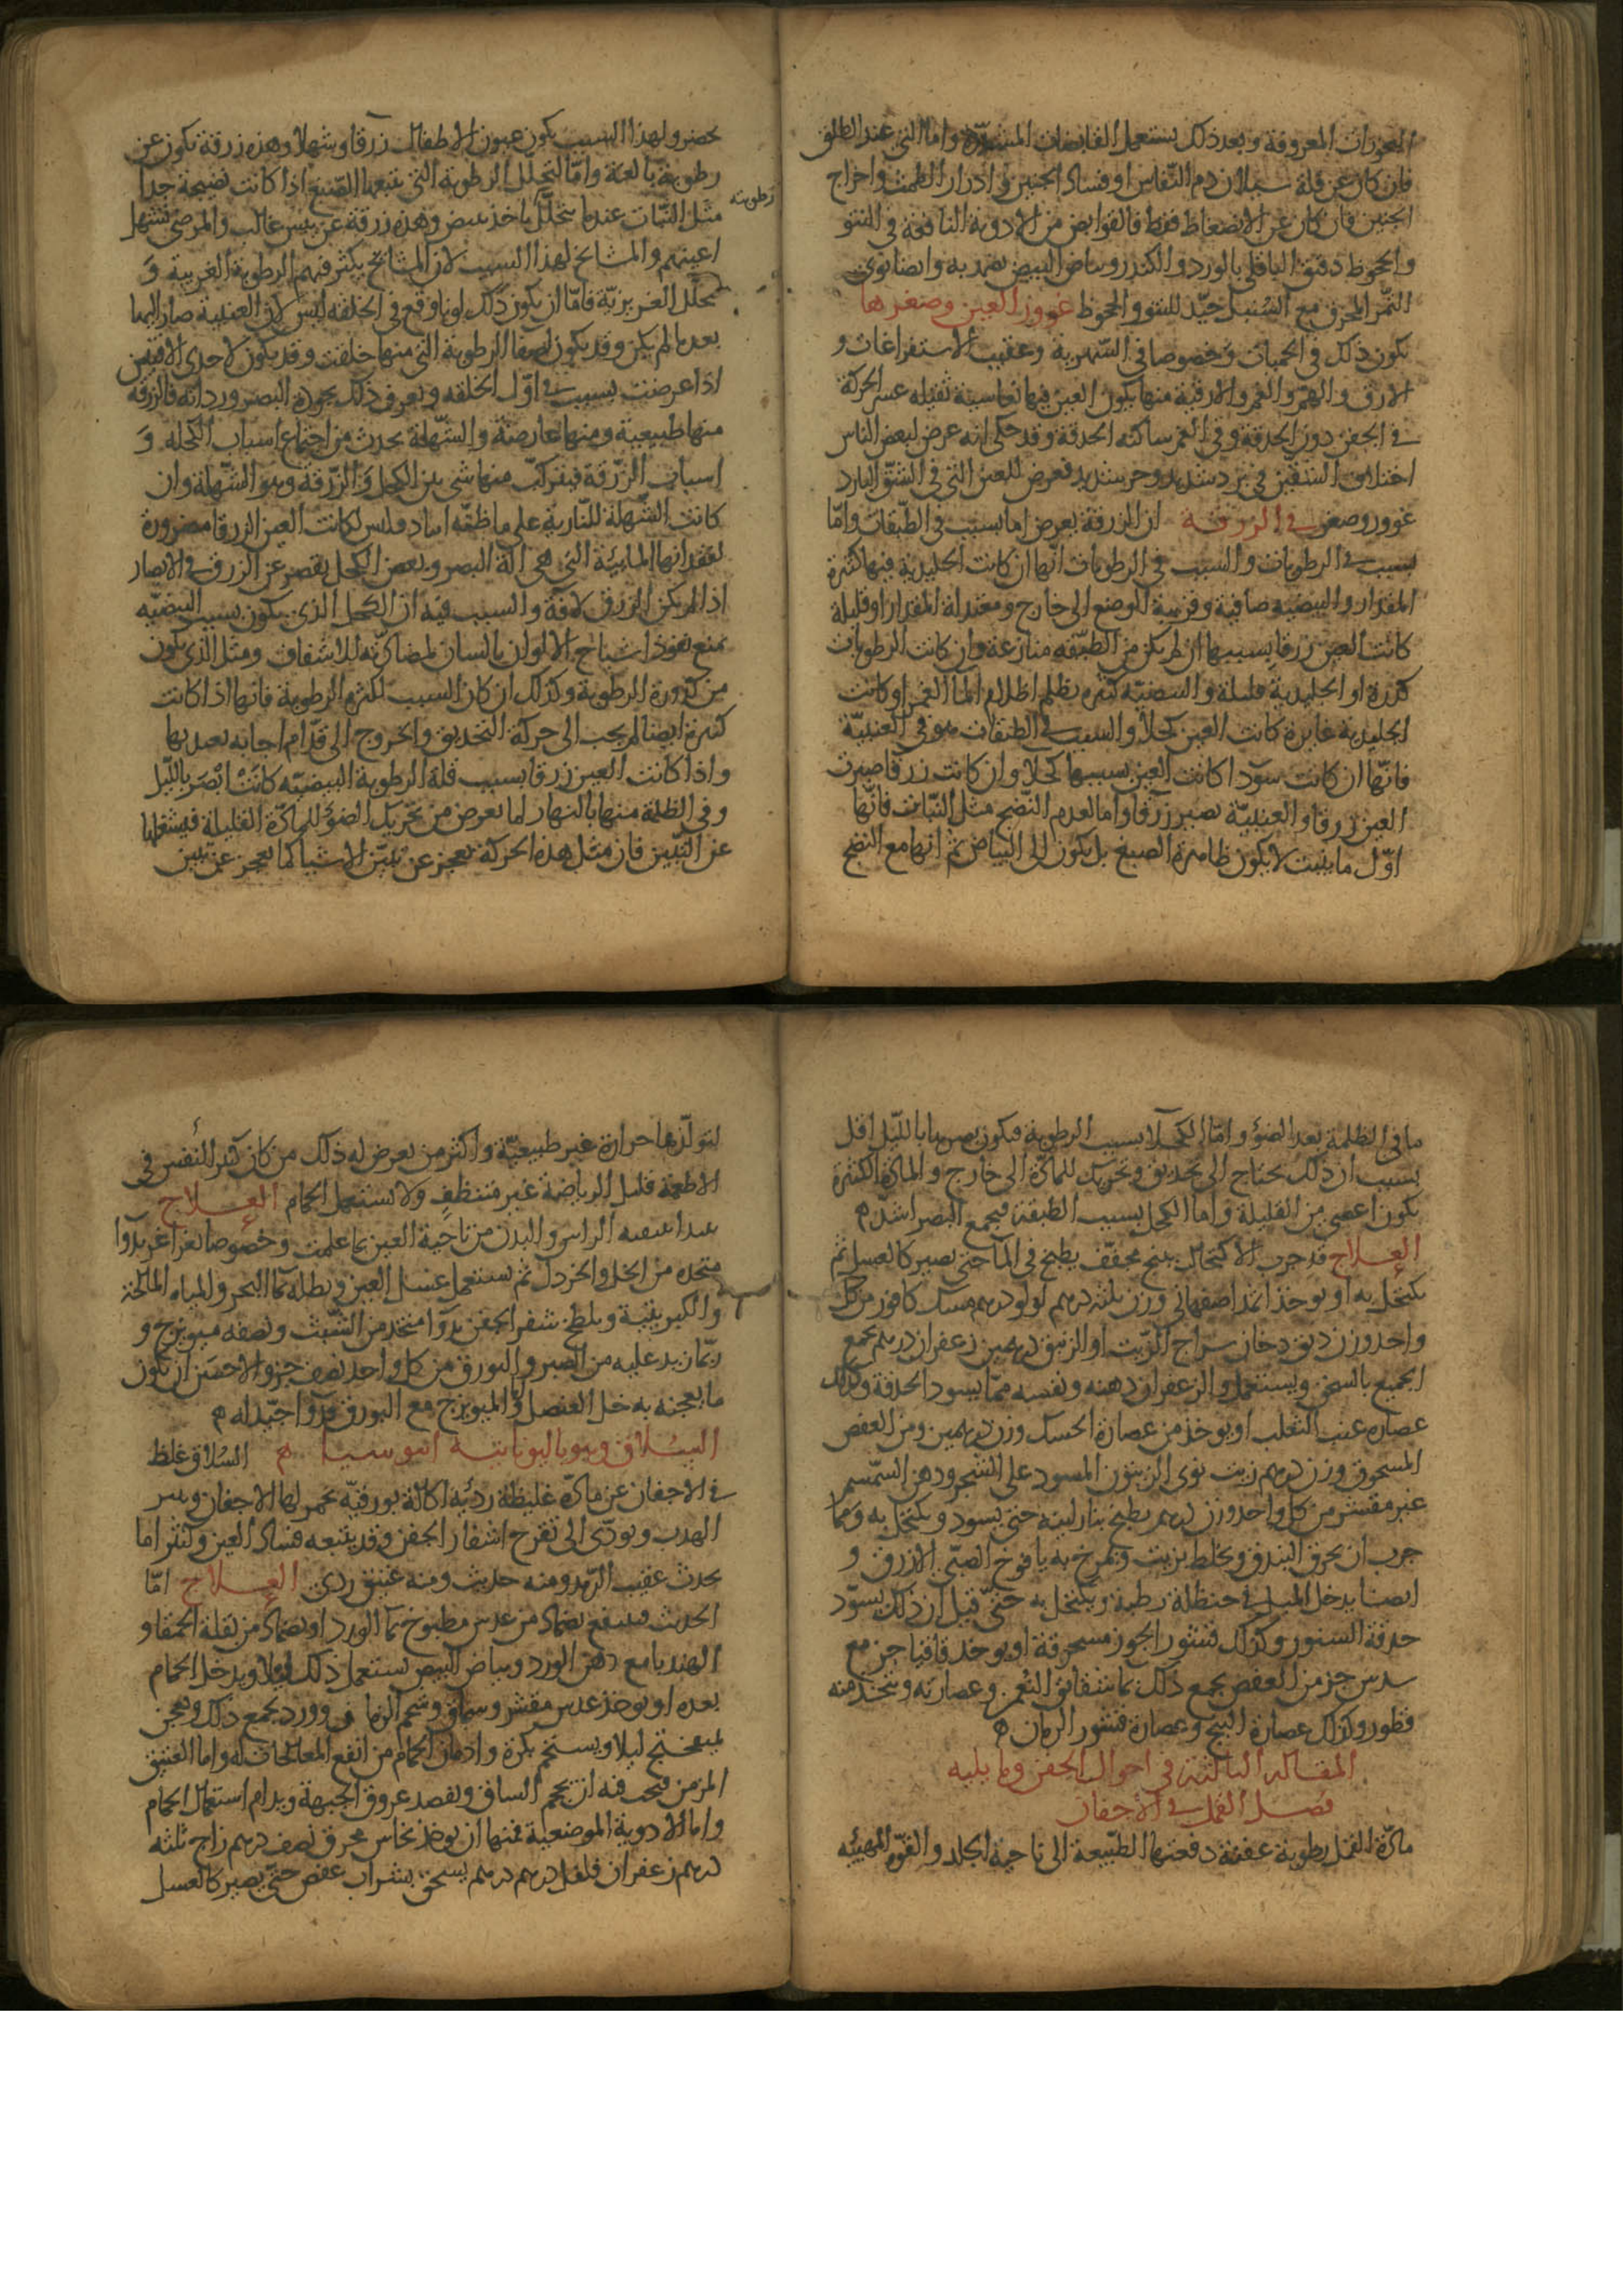 البخورات المعروفة وبعد ذلك يستعمل القابضات المشدّدة واما التى عند الطلق
فان كان عن قلة سيلان دم النّفاس او فساد الجنين فادرار الطمث واخراج
الجنين فان كان عن الانضغاط فقط فالقوابض من الادوية النافعة فى النتو
والجحوظ دقيق الباقلى بالورد والكندر وبياض البيض يضمد به وايضا نوى
التّمر المحرق مع السّنبل جيّد للنتو والجحوظ غوور العين وصغرها
يكون ذلك فى الحميات وخصوصا فى السّهرية وعقيب الاستفراغات و
الارق والهمّ والغم والارقية منها يكون العين فيها نعاسية ثقيلة عسر الحركة
فى الجفن دون الحدقة وفى الغم ساكنة الحدقة وقد حكى انه عرض لبعض الناس
اختلاف الشقين فى برد شديد وحر شديد فعرض للعين التى فى الشقّ البارد
غوور وصغر فى الزرقة ان الزرقة يعرض اما بسبب فى الطّبقات وامّا
بسبب فى الرطوبات والسبب فى الرطوبات انّها ان كانت الجليدية فيها كثيرة
المقدار والبيضيه صافية وقريبة الوضع الى خارج ومعتدلة المقدار او قليلة
كانت العين زرقا بسببها ان لم يكن من الطبّقه منازعة وان كانت الرطوبات
كدرة او الجليدية قليلة والبيضيّه كثيره يظلم اظلام الما الغمر او كانت
الجليدية غايرة كانت العين كحلا والسبب فى الطبقات هو فى العنبيّة
فانّها ان كانت سودا كانت العين بسببها كحلا وان كانت زرقا صيرت
العين زرقا والعنبيّة تصير زرقا واما لعدم النّضج مثل النّبات فانّها
اوّل ما ينبت لا يكون ظاهرة الصبغ بل يكون الى البياض ثم انها مع النضج
يخضر ولهذا السبب يكون عيون الاطفال زرقا وشهلا وهذه زرقة تكون عن
رطوبة بالغة وامّا لتحلّل الرطوبة التى يتبعها الصّبغ اذا كانت نضيجة جدا
رطوبته
مثل النّبات عندما يتحلّل ياخذ يبيض وهذه زرقة عن يبس غالب والمرضى تشهل
اعينهم والمشايخ لهذا السبب لان المشايخ يكثر فيهم الرطوبة الغريبة وَ
يتحلّل الغريزيّة فامّا ان يكون ذلك لونا وقع فى الخلقه ليس لان العنبية صار اليها
بعدما لم يكن وقد يكون لصفا الرطوبة التى منها خلقت وقد يكون لاحدى الافتين
اذا عرضت بسبب فى اوّل الخلقه ويعرف ذلك بجودة البصر ورداته فالزرقه
منها طبيعية ومنها عارضة والشّهلة يحدث من اجتماع اسباب الكحلة وَ
اسباب الزّرقة فيتركّب منها شى بين الكحل وَ الزّرقة وهو الشّهلة وان
كانت الشّهلة للنّارية على ما ظنّه لكانت العين الزرقا مضرورة
لفقدانها المايئة التى هى آلة البصر وبعض الكحل يقصر عن الزرق فى الابصار
اذا لم يكن الزرق لافة والسبب فيه ان الكحل الذى يكون بسبب البيضيّه
يمنع نفوذ اشباح الالوان بالسان لمضادّته للاشفاف ومثل الذى يكون
من كدورة الرطوبة وكذلك ان كان السبب لكثره الرطوبة فانها اذا كانت
كثيرة ايضا لم يجب الى حركة التحديق والخروج الى قدّام اجابة يعتد بها
واذا كانت العين زرقا بسبب قلة الرطوبة البيضيّه كانَتْ ابْصَر باللّيل
وفى الظلمة منها بالنهار لما يعرض من تحريك الضؤ للمادّة القليلة فيشغلها
عن التّبيين فان مثل هذه الحركة يعجز عن تبيّن الاشيا كما يعجز عن تبيين
ما فى الظلمة بعد الضؤ وامّا الكحلا بسبب الرطوبة فيكون بصرها باللّيل اقل
بسبب ان ذلك يحتاج الى تحديق وتحريك للمادّة الى خارج والمادّة الكثيرة
يكون اعصى من القليلة واما الكحل بسبب الطبقة فيجمع البصر اشدّ ه
العلاج قد جرب الاكتحال ببنج مجفّف يطبخ فى الما حتى يصير كالعسل ثم
يكتحل به او يوخذ اثمد اصفهانى وزن ثلثه درهم لولو درهم مسك كافور من كل
واحد وزن دنق دخان سراج الزّيت او الزنبق درهمين زعفران درهم يجمع
الجميع بالسحق ويستعمل والزعفران دهنه ونفسه ممّا يسود الحدقة وكذلك
عصاره عنب الثعلب او يوخذ من عصارة الحسك وزن درهمين ومن العفص
المسحوق وزن درهم زيت نوى الزيتون المسود على الشجر ودهن السّمسم
غير مقشر من كل واحد وزن درهم يطبخ بنار لينه حتى يسود ويكتحل به ومما
جرب ان يحرق البندق ويخلط بزيت ويمرخ به يافوخ الصبّى الازرق و
ايضا يدخل الميل فى حنظلة رطبة ويكتحل به حتّى قيل ان ذلك يسوّد
حدقة السنور وكذلك قشور الجوز مسحوقة او يوخذ قاقيا جز مع
سدس جز من العفص يجمع ذلك بما شقايق النُعمن وعصارته ويتخذ منه
قطور وكذلك عصارة البنج وعصارة قشور الرمان ه
المقالة الثالثة فى احوال الجفن وما يليه
فصل القمل فى الاجفان
مادّة القمل رطوبة عفنة دفعتها الطبّيعة الى ناحية الجلد والقوّه المهيئه
لتولّدها حرارة غير طبيعيّة واكثر من يعرض له ذلك من كان كثير التّفنّن فى
الاطعمة قليل الرياضة غير متنظف ولا يستعمل الحمام العلاج
تبدا بتنقيه الراس والبدن من ناحية العين بما علمت وخصوصا بغراغر
متخذه من الخل والخردل ثم يستعمل غسل العين ونطله بما البحر والمياه المالحة
والكبريتية ويلطخ شفر الجفن بدوا متخذ من الشّب ونصفه ميويزج و
ربّما زيد عليه من الصبر والبورق من كل واحد نصف جزو الاحسَن ان يكون
ما يعجنه به خل العنصل والميويزج مع البورق دوا جيّد له ه
السُلاق وهو باليونانيه انيوسيما ه السُلاق غلظ
فى الاجفان عن مادّة غليظة رديّه اكّالة بورقيّه تحمر لها الاجفان وينثر
الهدب ويودّى الى تقرح اشفار الجفن وقد يتبعه فساد العين وكثيرا ما
يحدث عقيب الرّمد ومنه حديث ومنه عتيق ردى العلاج امّا
الحديث فينفع ضماد من عدس مطبوخ بما الورد او ضماد من بقلة الحمقا و
الهندبا مع دهن الورد وبياض البيض يستعمل ذلك ليلا ويدخل الحمام
بعده او يوخذ عدس مقشر وسماق وشحم الرمان وورد يجمع ذلك ويعجن
بميبختج ليلا ويستحم بكرة وادمان الحمام من انفع المعالجات له واما العتيق
المزمن فيجب فيه ان يحجم الساق ويفصد عروق الجبهة ويدام استعمال الحمام
واما الادوية الموضعية فمنها ان يوخذ نحاس محرق نصف درهم زاج ثلثه
درهم زعفران فلفل درهم درهم يسحق بشراب عفص حتّى يصير كالعسل